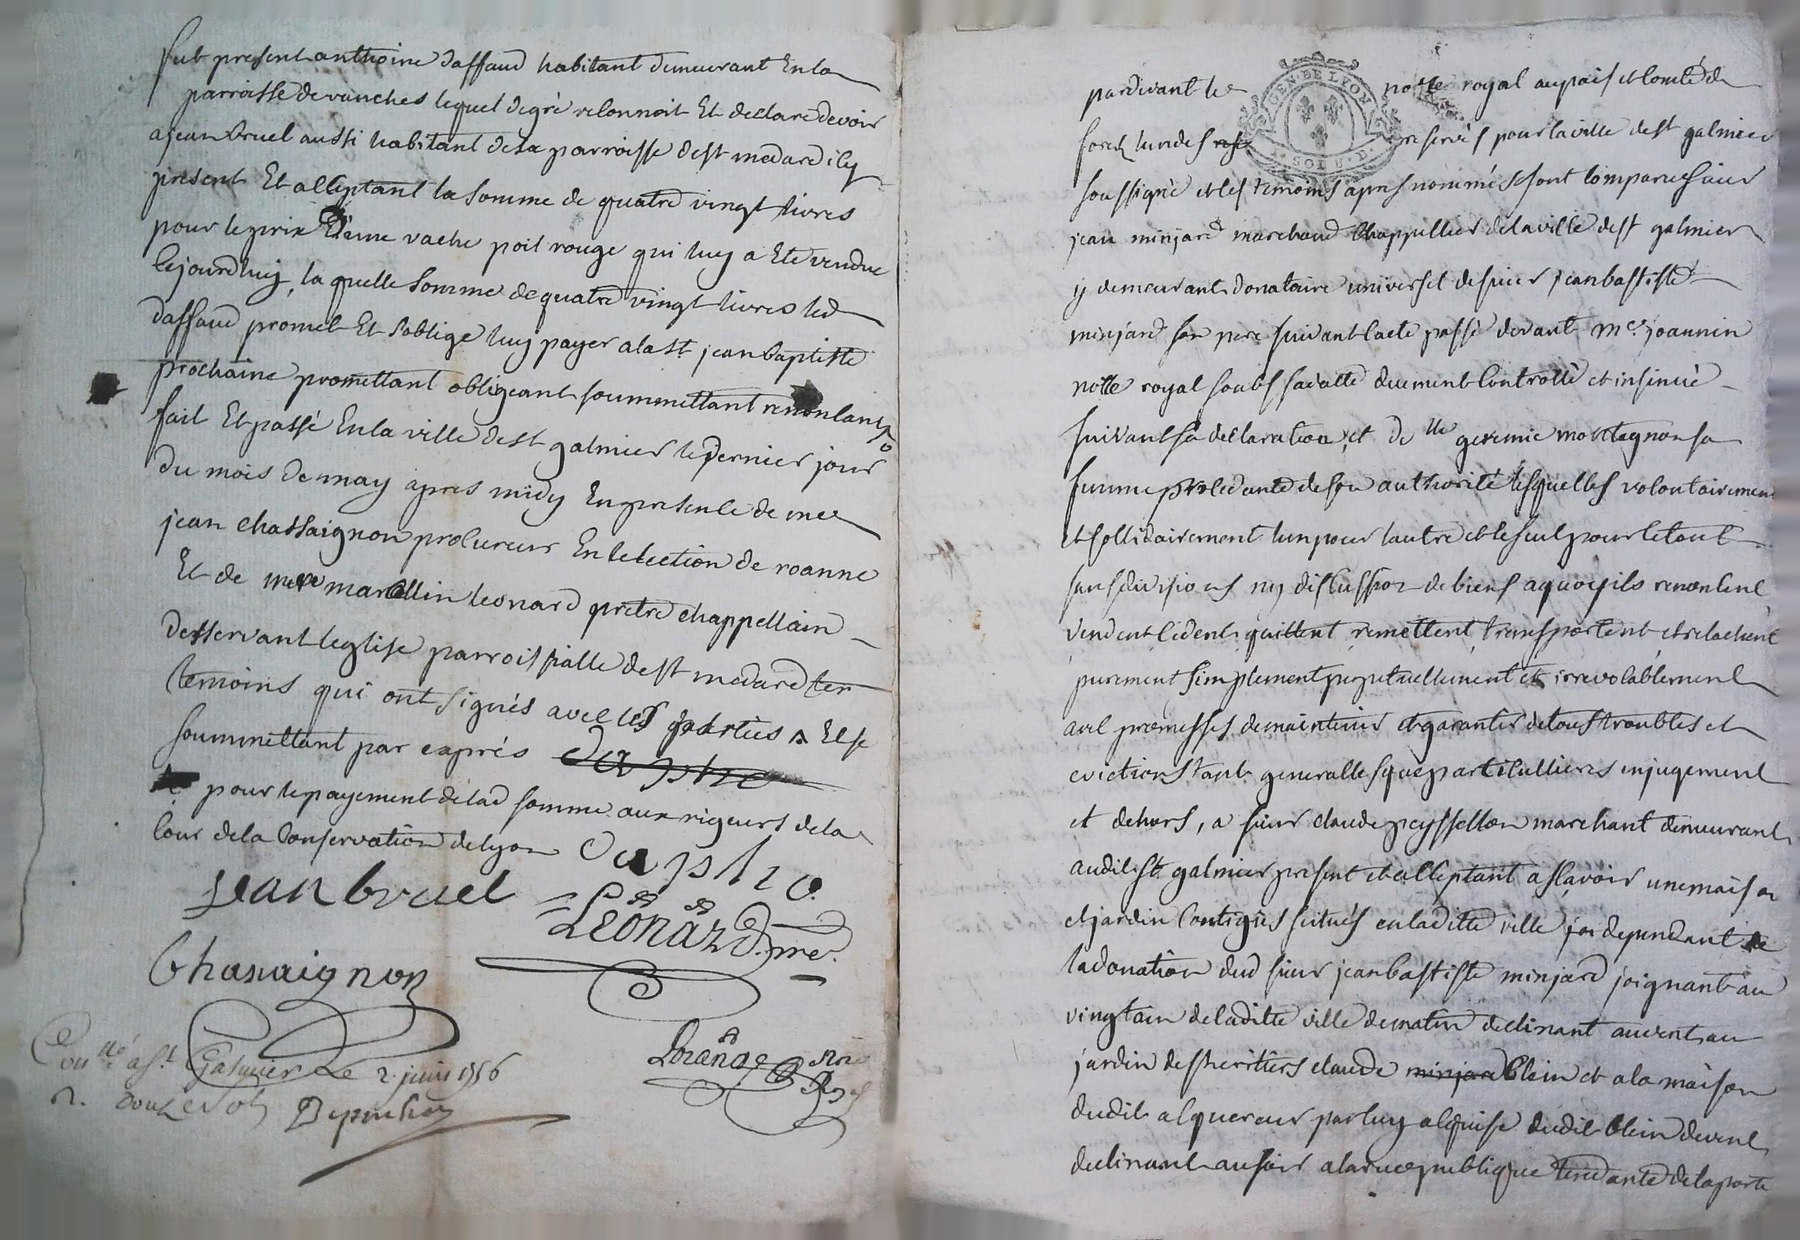 fut present anthoine daffaud habitant demeurant En la
parroisse de vauches lequel de gré reconnoit Et declare devoir
a jean bruel aussi habitant de la parroisse de st medard icy
present Et acceptant la somme de quatre vingt livres
pour le prix D'une vache poil rouge qui luy a Eté vendue
cejourdhuy, la quelle somme de quatre vingt livres led
daffaud promet Et soblige luy payer a la st jean baptiste
prochaine promettant obligeant soummettant renoncant
fait Et passé En la ville de st galmier le dernier jour
du mois de may apres midy En presence de me
jean chassaignon procureur En lelection de roanne
Et de mre marcellin leonard prètre chappellain
desservant leglise parroissialle de st medard
temoins qui ont signés avec les parties Et se
soummettant par caprés
pour le payement de lad somme aux rigeurs de la
cour de la Conservation de lyon
jean bruel
Leonard
Chasaignon
Conllé a st Galmier Le 2 juin 1756
R. douze sols
par devant le notre royal au pais et comté de
forez lun des reservés pour la ville de st galmier
soussigné et les temoins apres nommés sont comparus sieur
jean minjard marchand Chappellier de la ville de st galmier
y demeurant donataire universel de sieur jean baptiste
minjard son pere suivant lacte passé devant me joannin
notre royal soubs sa datte duement Controllé et insinué
suivant sa declaration, et dlle geremie montagnon sa
femme procedante de son authorité lesquelles volontairement
et sollidairement lun pour lautre et le seul pour le tout
sans divisions ny discussion de biens a quoy ils renoncent
vendent cedent quittent remettent transportent et relachent
purement simplement perpetuellement et irrevocablement
avec promesses de maintenir et garantir de tous troubles et
evictions tant generalles que particullieres en jugement
et dehors, a sieur claude peyssellon marchant demeurant
audit st galmier present et acceptant a sçavoir une maison
et jardin Contigûs scitués en laditte ville dependant de
la donation dud sieur jean baptiste minjard joignant au
vingtain de laditte ville de matin declinant au vent au
jardin des heritiers claude minjard blein et a la maison
dudit acquereur par luy acquise dudit blein de vent
declinant au soir a la rue publique tendante de la porte